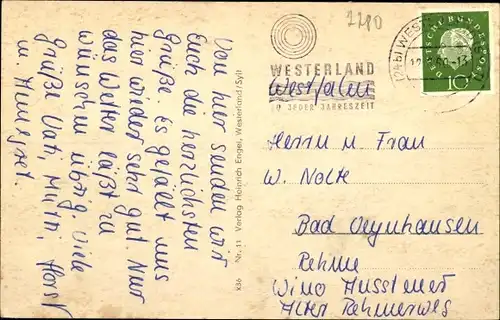 Von hier senden wir
Euch die herzlichsten
Grüße. Es gefällt uns
hier wieder sehr gut. Nur
das Wetter läßt zu
wünschen übrig. Viele
Grüße Vati, Mutti, Horst
u. Annegret.
K36 Nr. 11 Verlag Heinrich Engel, Westerland/Sylt
WESTERLAND
ZU JEDER JAHRESZEIT
DEUTSCHE BUNDESPOST
10
Westfalen
Herrn u. Frau
W. Nolte
Bad Oeynhausen
Rehme
Alter Rehmerweg